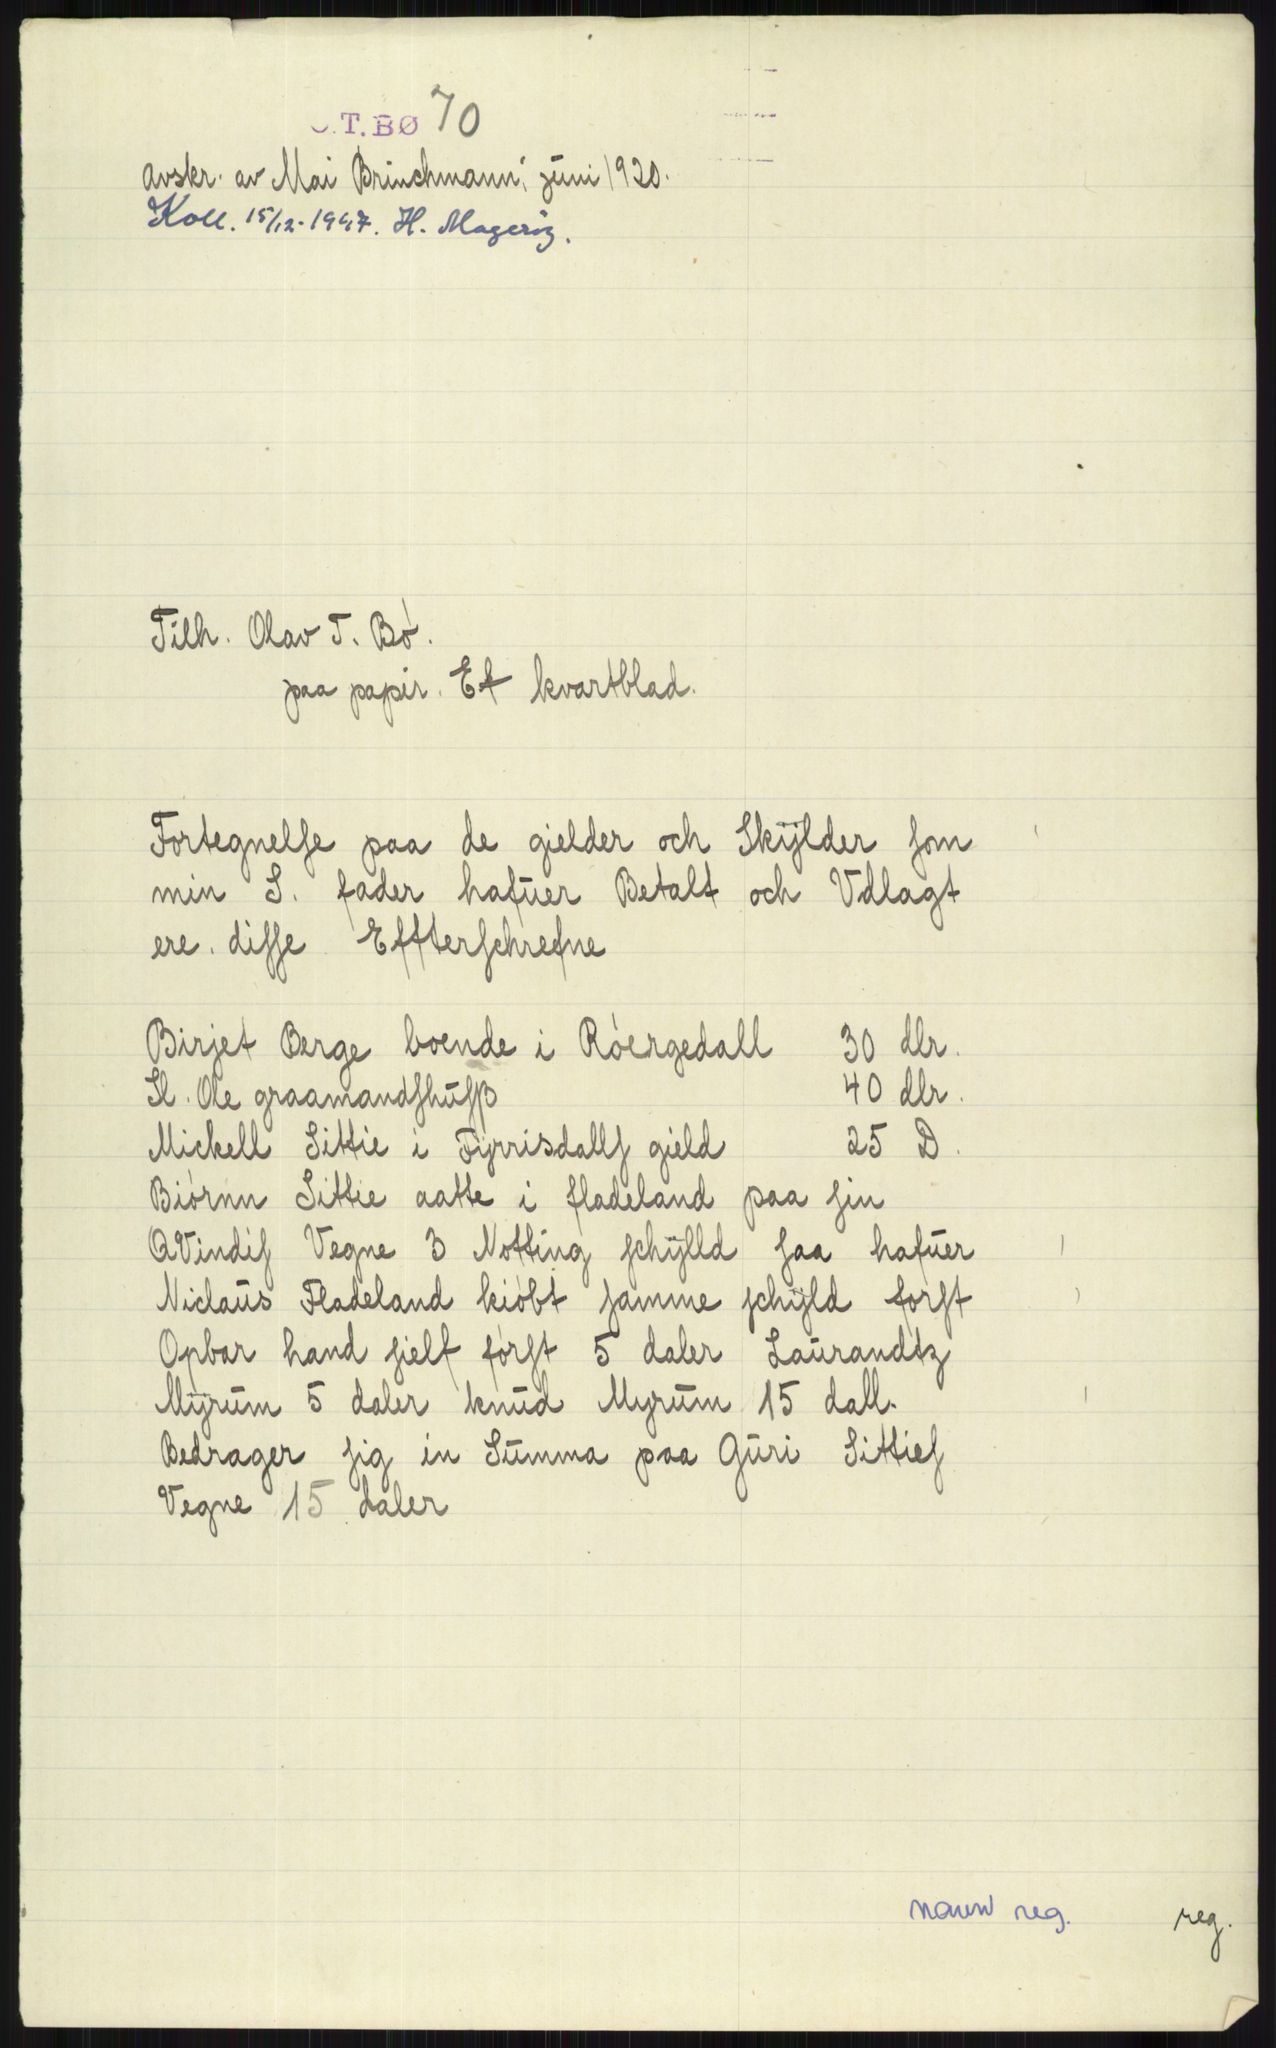 O.T.BØ 70
Avskr. av Mai Brinchmann, juni 1920.
Koll. 15/12-1947. H. Magerøy.
Tilh. Olav T. Bø.
paa papir. Et kvartblad.
Fortegnelſe paa de gielder och Skÿlder ſom
min S. fader hafuer Betalt och Vdlagt
ere. diſſe Effterſchrefne
Birjet Berge boende i Róergedall 30 dlr.
Sl. Ole graamandſhuſß 40 dlr.
Mickell Sittie i Fÿrrisdallſ gield 25 D.
Biórnn Sittie aatte i fladeland paa ſin
QVindiſ Vegne 3 Notting ſchÿlld ſaa hafuer
Niclaus Fladeland kióbt ſamme ſchÿld fórſt
Opbar hand ſielf fórſt 5 daler Laurandtz
Mÿrum 5 daler knud Mÿrum 15 dall.
Bedrager ſig in Summa paa Guri Sittieſ
Vegne 15 daler
navn reg.
reg.